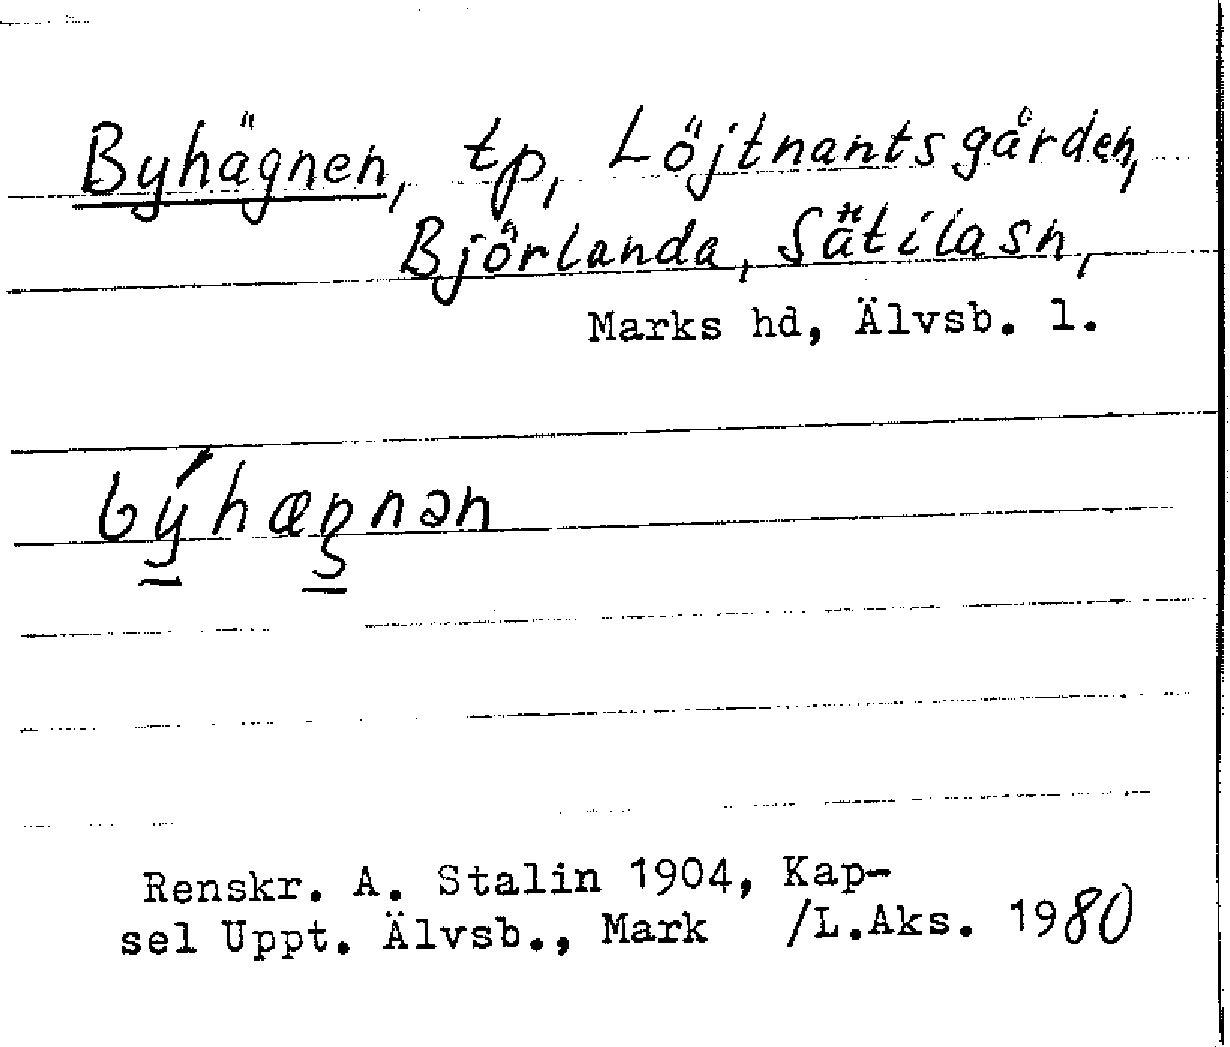 Byhägnen, tp, Löjtnantsgården,
Björlanda, Sätila sn,
Marks hd, Älvsb. l.
bý̲hæg̲nən
Renskr. A. Stalin 1904, Kap-
sel Uppt. Älvsb., Mark /L.Aks. 1980